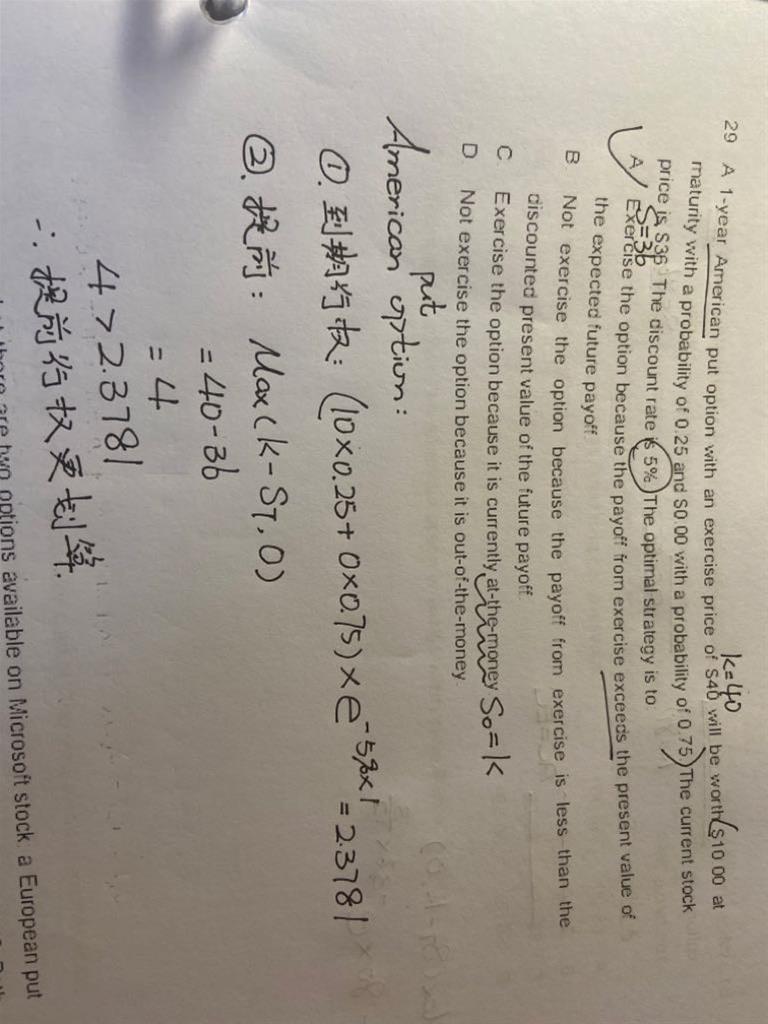 k=40
29 A 1-year American put option with an exercise price of $40 will be worth $10 00 at
maturity with a probability of 0.25 and $0.00 with a probability of 0.75 The current stock
price is $36 The discount rate is 5% The optimal strategy is to
S=36
A Exercise the option because the payoff from exercise exceeds the present value of
the expected future payoff
B Not exercise the option because the payoff from exercise is less than the
discounted present value of the future payoff.
C Exercise the option because it is currently at-the-money S₀=k
D Not exercise the option because it is out-of-the-money
put
American option:
①. 到期行权: (10×0.25+0×0.75)×e^-5%×1 = 2.3781
②. 提前: Max(k-ST,0)
=40-36
=4
4>2.3781
∴ 提前行权更划算.
there are two options available on Microsoft stock a European put